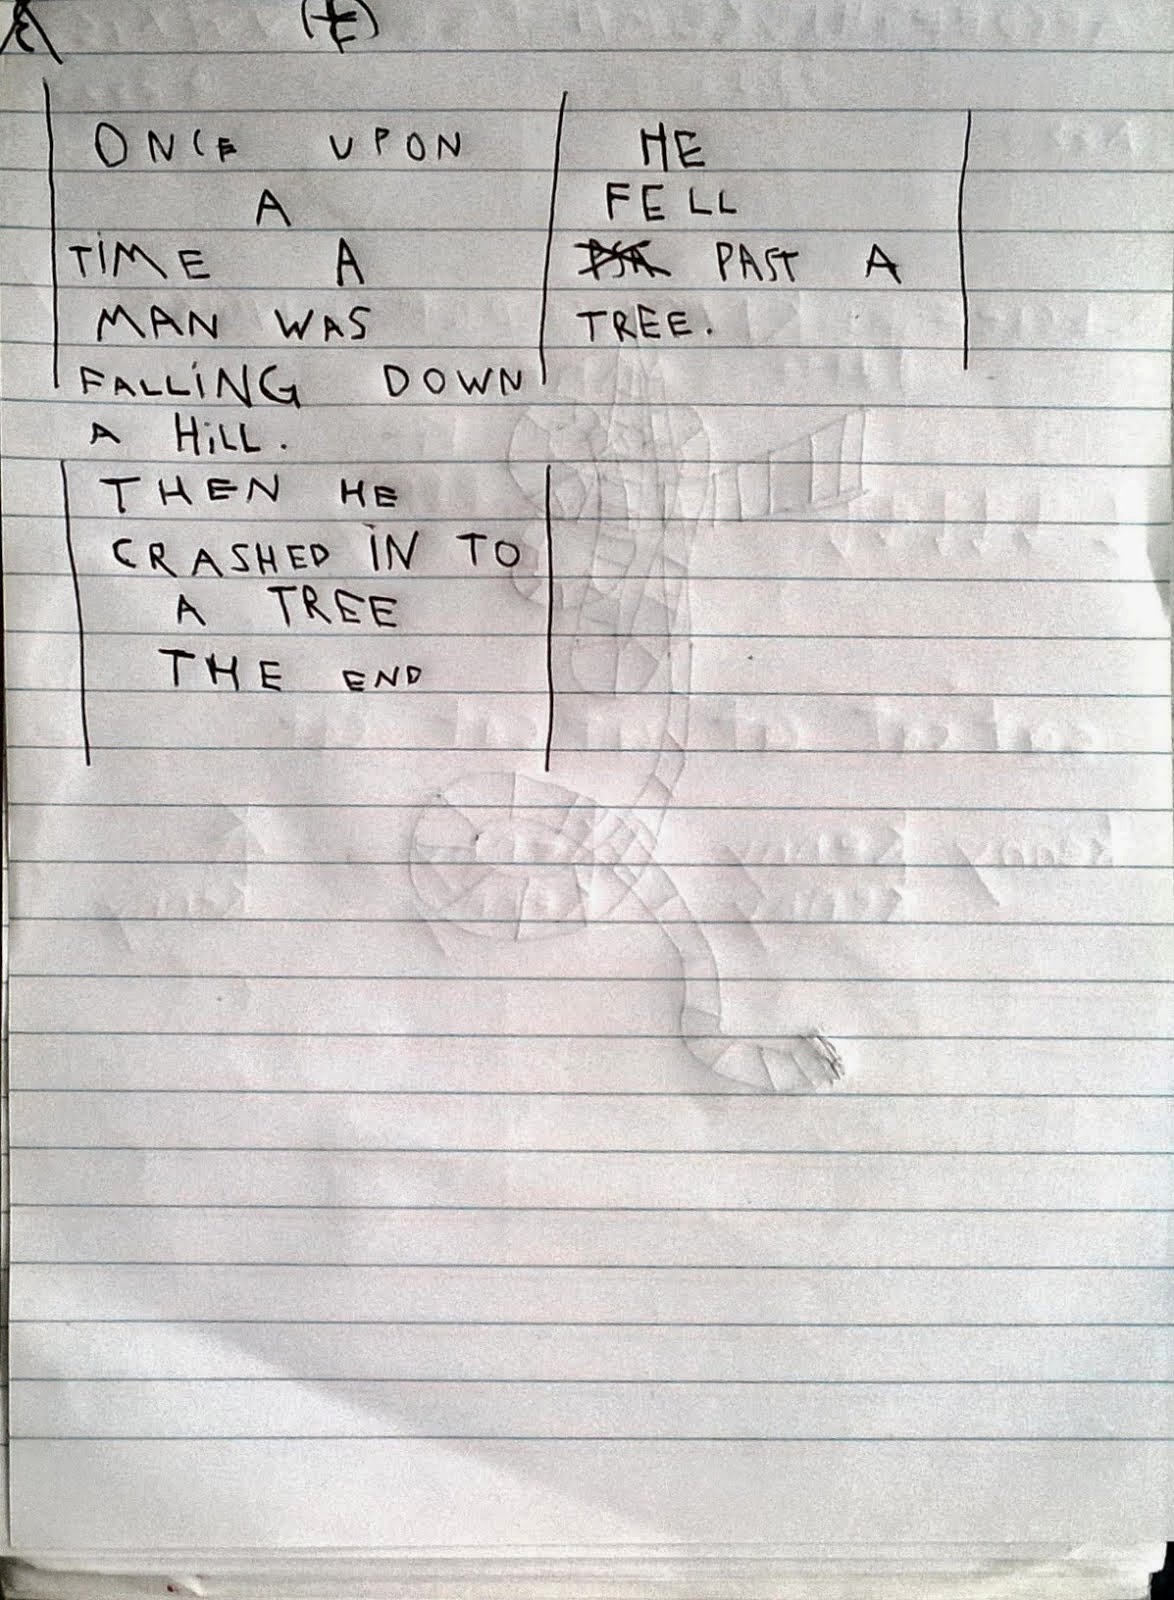 ONCE UPON
A
TIME A
MAN WAS
FALLING DOWN
A HILL.
HE
FELL
PAST A
TREE.
THEN HE
CRASHED IN TO
A TREE
THE END